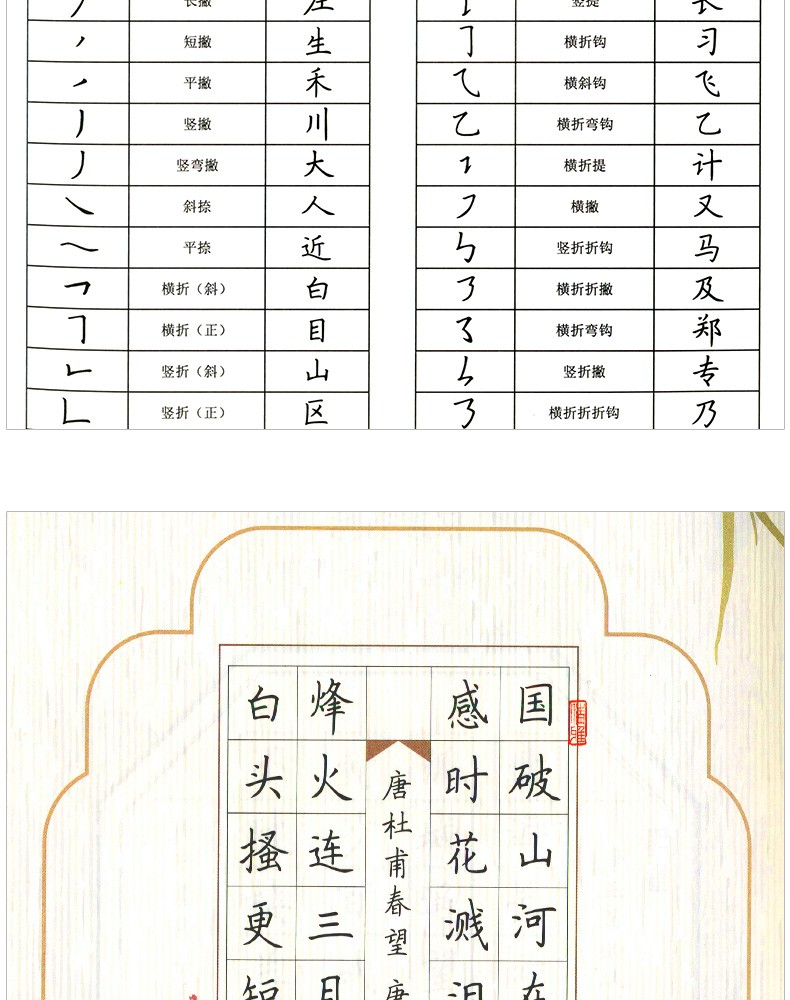 长撇
短撇 生
平撇 禾
竖撇 川
竖弯撇 大
斜捺 人
平捺 近
横折（斜） 白
横折（正） 目
竖折（斜） 山
竖折（正） 区
竖提 长
横折钩 习
横斜钩 飞
横折弯钩 乙
横折提 计
横撇 又
竖折折钩 马
横折折撇 及
横折弯钩 郑
竖折撇 专
横折折折钩 乃
国破山河在
感时花溅泪
唐杜甫春望 唐
烽火连三月
白头搔更短